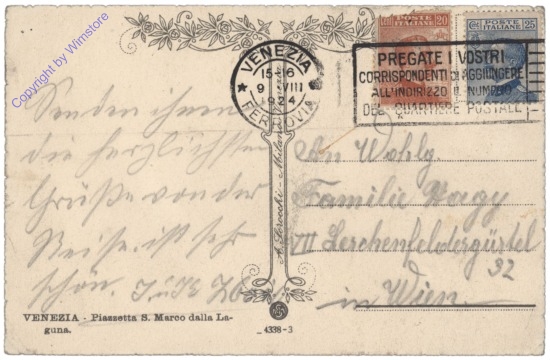 Copyright by Wimstore
POSTE ITALIANE
20
POSTE ITALIANE
25
VENEZIA
15-16
9 VIII
1924
FERROVIA
PREGATE I VOSTRI
CORRISPONDENTI DI AGGIUNGERE
ALL'INDIRIZZO IL NUMERO
DEL QUARTIERE POSTALE
Senden ihnen
die herzlichsten
Grüße von der
Reise. ist sehr
schön.
A. Scrocchi - Milano
An Wohlg.
Familie Nagy
VII Lerchenfeldergürtel
32
in Wien
VENEZIA - Piazzetta S. Marco dalla La-
guna.
4338-3